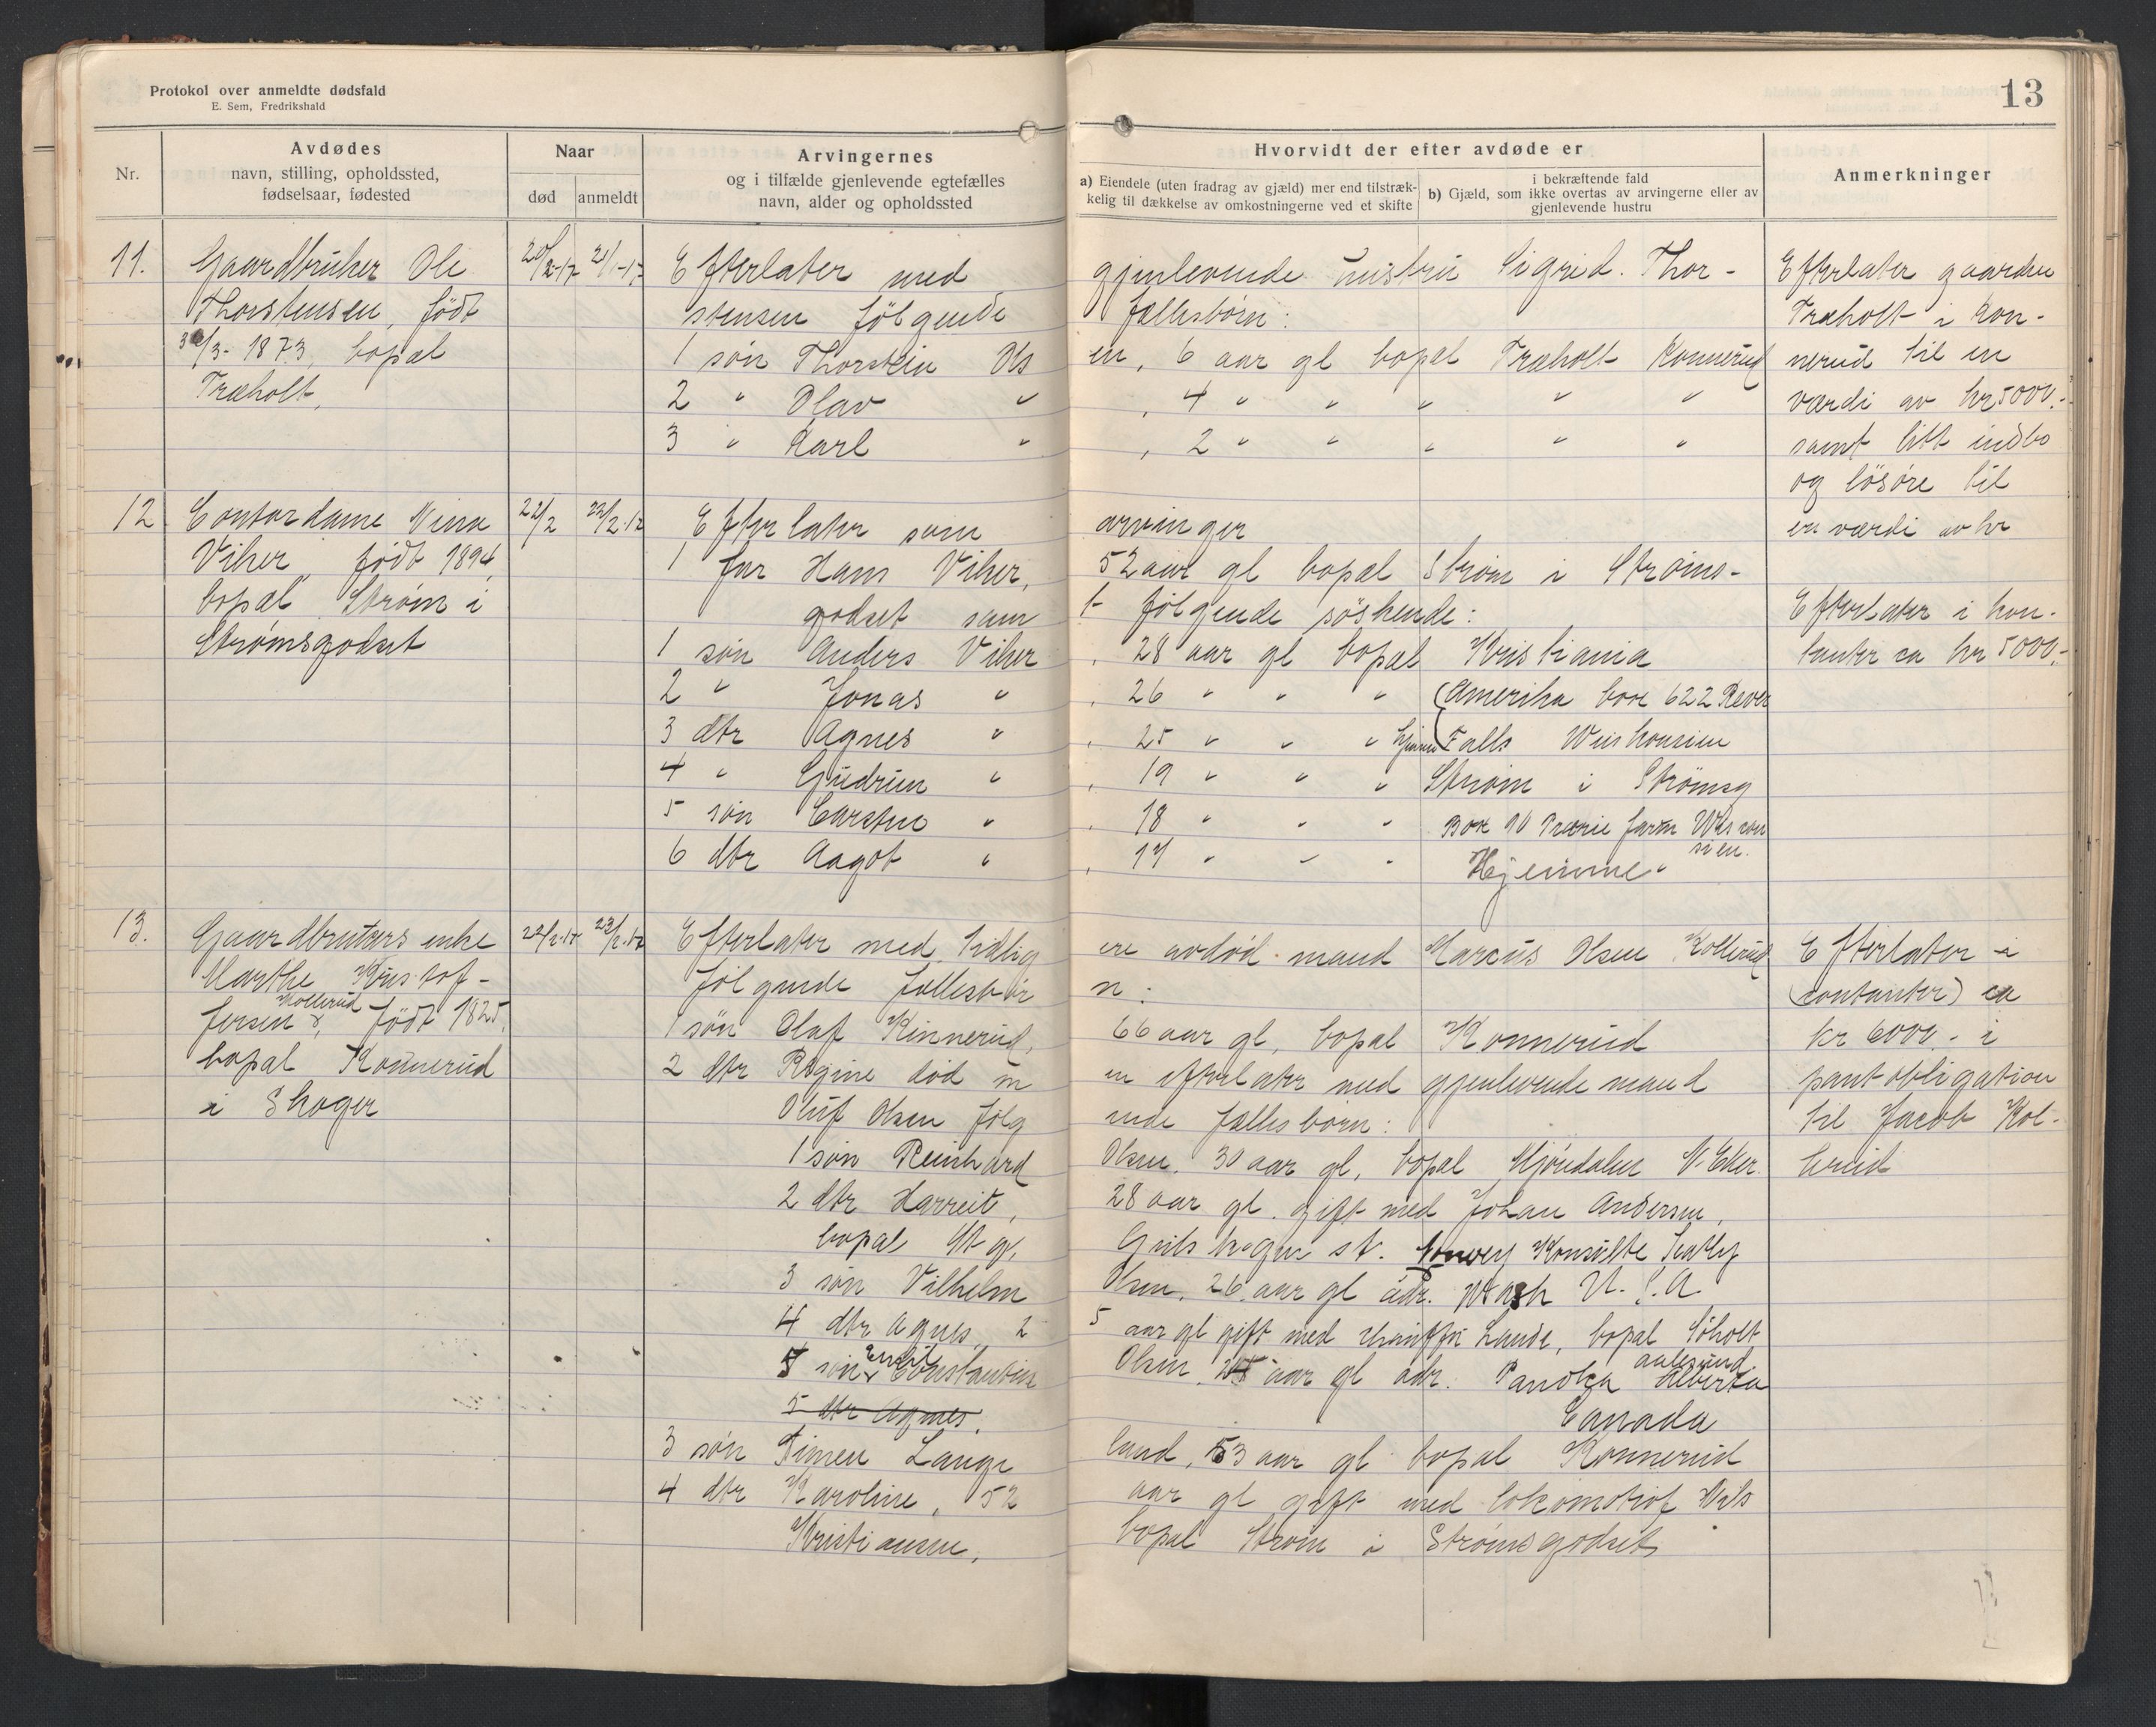 Protokol over anmeldte dødsfald
E. Sem, Fredrikshald
13
Nr.
Avdødes
navn, stilling, opholdssted,
fødselsaar, fødested
Naar
død anmeldt
Arvingernes
og i tilfælde gjenlevende egtefælles
navn, alder og opholdssted
Hvorvidt der efter avdøde er
a) Eiendele (uten fradrag av gjæld) mer end tilstræk-
kelig til dækkelse av omkostningerne ved et skifte
i bekræftende fald
b) Gjæld, som ikke overtas av arvingerne eller av
gjenlevende hustru
Anmerkninger
11. Gaardbruker Ole
Thorstensen, født
3/3- 1873, bopæl
Træholt,
20/2-17 21/1-17
Efterlater med gjenlevende hustru Sigrid. Thor-
stensen følgende fællesbørn:
1 søn Thorstein Olsen, 6 aar gl bopæl Træholt Konnerud
2 " Olav " , 4 " " " " "
3 " Karl " , 2 " " " " "
Efterlater gaarden
Træholt i Kon-
nerud til en
værdi av kr 5000.-
samt litt indbo
og løsøre til
en værdi av kr
12 Contordame Nina
Viker, født 1894,
bopæl Strøm i
Strømsgodset
22/2 22/2.17
Efterlater som arvinger
1 far Hans Viker, 52 aar gl bopæl Strøm i Strøms-
godset samt følgende søskende:
1 søn Anders Viker, 28 aar gl bopæl Kristiania
2 " Jonas " , 26 " " " (Amerika box 622 River
3 dtr Agnes " , 25 " " " hjemme Falls Wiskonsien
4 " Gudrun " , 19 " " " Strøm i Strømsg
5 søn Carsten " , 18 " " " Box 90 Prærie farm Wiscon
sien.
6 dtr Aagot " , 17 " " " Hjemme "
Efterlater i kon-
tanter ca kr 5000.-
13. Gaardbrukers enke
Marthe Kristof-
fersen Kollerud, født 1825,
bopæl Konnerud
i Skoger
22/2.17 23/2.17
Efterlater med tidligere avdød mand Marcus Olsen Kollerud
følgende fællesbørn:
1 søn Olaf Kinnerud, 66 aar gl, bopæl Konnerud
2 dtr Regine død men efterlater med gjenlevende mand
Oluf Olsen følgende fællesbørn:
1 søn Reinhard Olsen. 30 aar gl, bopæl Mjøndalen N. Eker.
2 dtr Harreit, 28 aar gl. gift med Johan Andersen,
bopæl
3 søn Vilhelm Olsen, 26 aar gl adr. Wash U.S.A.
4 dtr Agnes, 25 aar gl gift med Lande, bopæl Søholt
aalesund
5 søn Emil Constantin Olsen, aar gl adr. Panoka Alberta
Canada
5 dtr Agnes.
3 søn Simen Langeland, 53 aar gl bopæl Konnerud
4 dtr Karoline, 52 aar gl gift med lokomotivf Nils
Kristiansen, bopæl Strøm i Strømsgodset
Efterlater i
(contanter) ca
kr 6000.- i
pantobligation
til Jacob Kol-
lerud